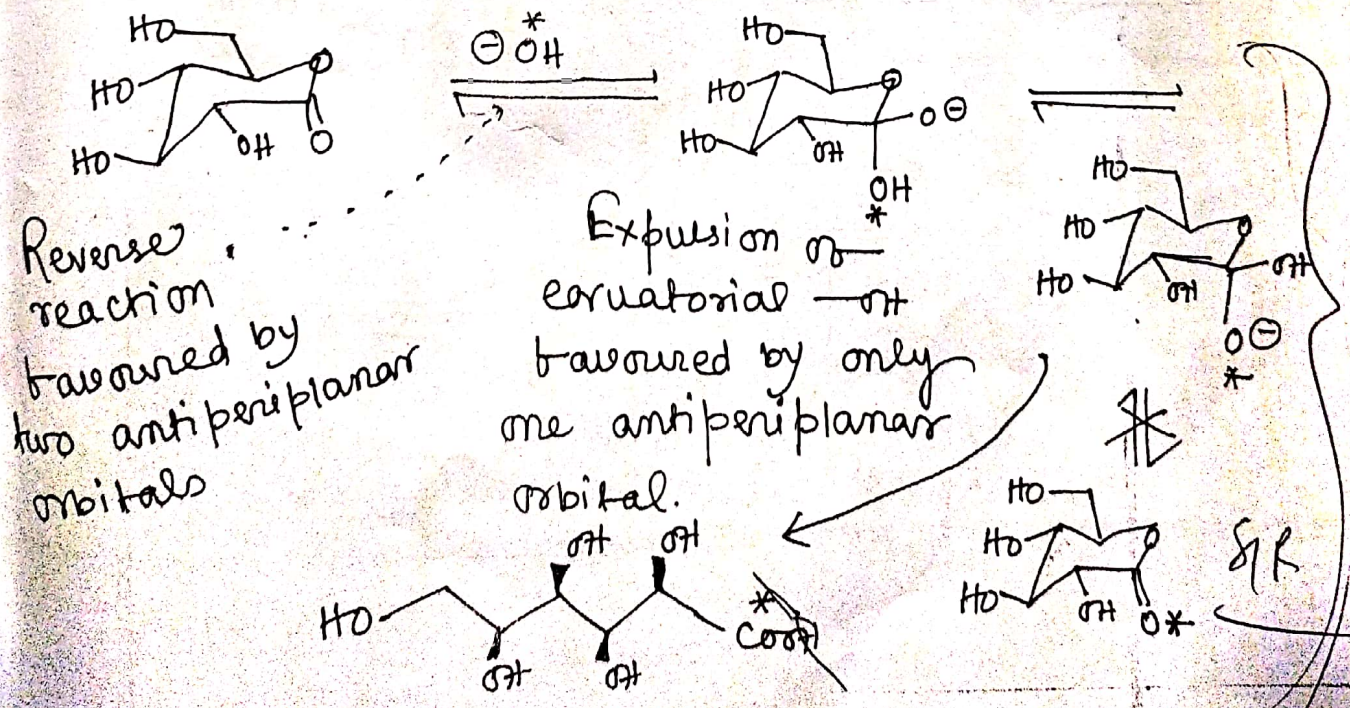 HO
HO
HO
OH
O
O
⊖ O*H
HO
HO
HO
OH
O
O⊖
OH
*
HO
HO
HO
OH
O
OH
O⊖
*
Reverse
reaction
favoured by
two antiperiplanar
orbitals
Expulsion of
equatorial –OH
favoured by only
one antiperiplanar
orbital.
HO
OH
OH
OH
OH
*
COOH
HO
HO
HO
OH
O
O*